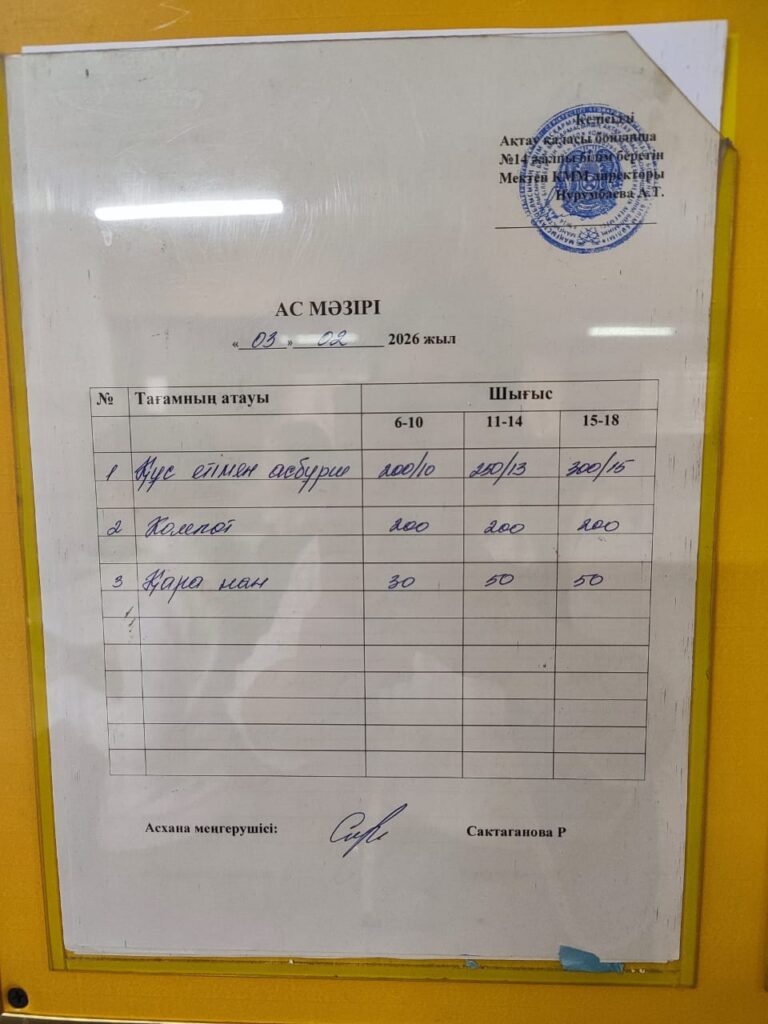 Келісілді
Ақтау қаласы бойынша
№14 жалпы білім беретін
Мектеп КММ директоры
Нурумбаева А.Т.
АС МӘЗІРІ
« 03 » 02 2026 жыл
№ Тағамның атауы Шығыс
6-10 11-14 15-18
1 Құс етімен асбурш 200/10 250/13 300/15
2 Компот 200 200 200
3 Қара нан 30 50 50
Асхана меңгерушісі: Сактаганова Р